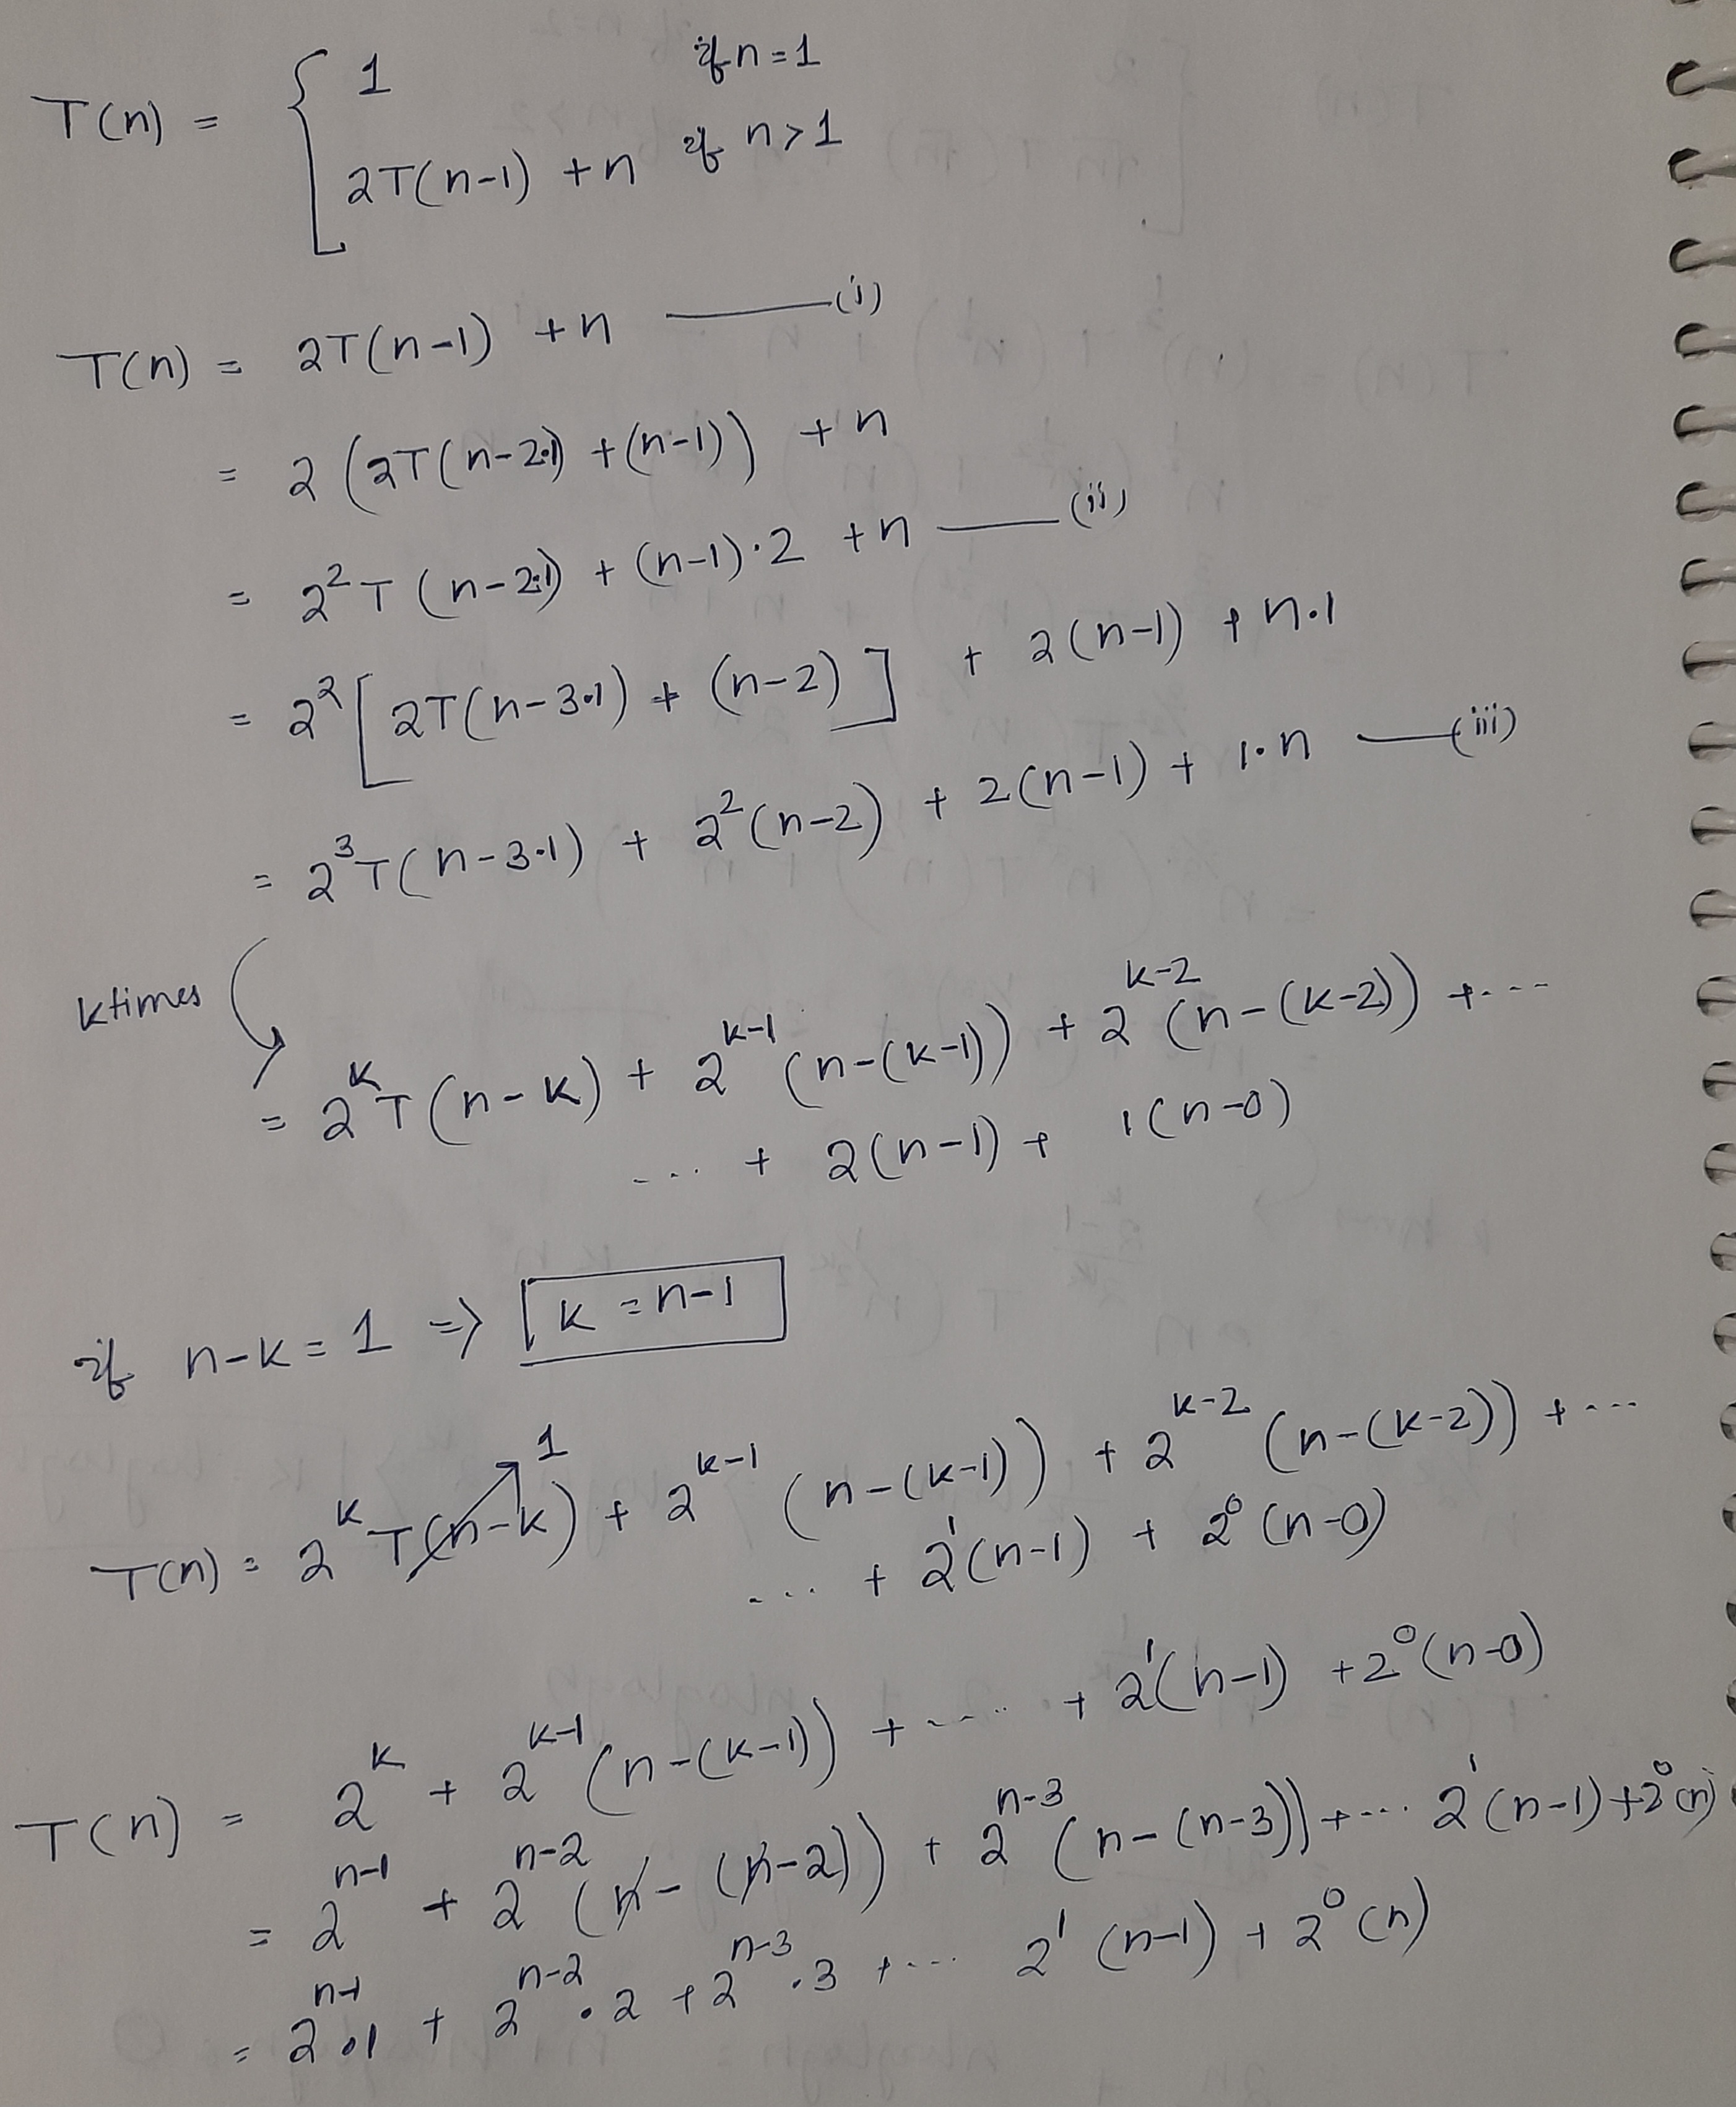 T(n) = { 1 if n=1
2T(n-1) +n if n>1
T(n) = 2T(n-1) +n ——(i)
= 2 (2T(n-2·1) +(n-1)) +n
= 2² T (n-2·1) + (n-1)·2 +n ——(ii)
= 2² [ 2T(n-3·1) + (n-2) ] + 2(n-1) + n·1
= 2³T(n-3·1) + 2²(n-2) + 2(n-1) + 1·n ——(iii)
k times
= 2^k T(n-k) + 2^(k-1) (n-(k-1)) + 2^(k-2) (n-(k-2)) +....
.... + 2(n-1) + 1(n-0)
if n-k = 1 => k = n-1
T(n) = 2^k T(n-k) 1 + 2^(k-1) (n-(k-1)) + 2^(k-2) (n-(k-2)) +...
.... + 2¹(n-1) + 2⁰(n-0)
T(n) = 2^k + 2^(k-1) (n-(k-1)) +..... + 2¹(n-1) +2⁰(n-0)
= 2^(n-1) + 2^(n-2) (n-(n-2)) + 2^(n-3) (n-(n-3)) +.... 2¹(n-1)+2⁰(n)
= 2^(n-1)·1 + 2^(n-2)·2 + 2^(n-3)·3 +.... 2¹(n-1) + 2⁰(n)